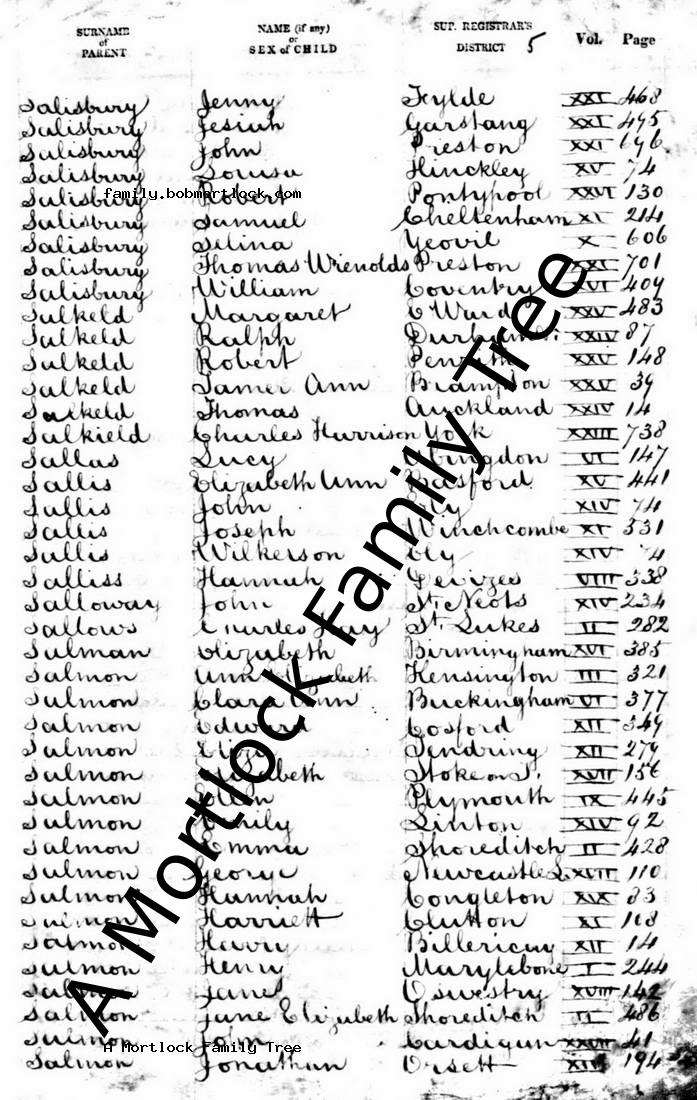 SURNAME of PARENT NAME (if any) or SEX of CHILD SUP. REGISTRAR'S DISTRICT 5 Vol. Page
Salisbury Jenny Fylde XXI 468
Salisbury Jesiah Garstang XXI 495
Salisbury John Preston XXI 696
Salisbury Louisa Hinckley XV 74
family.bobmartlock.com
Salisbury Robert Pontypool XXVI 130
Salisbury Samuel Cheltenham XI 214
Salisbury Selina Yeovil X 606
Salisbury Thomas Wrenolds Preston XXI 701
Salisbury William Coventry XVI 409
Salkeld Margaret E Ward XXV 483
Salkeld Ralph Durham XXIV 87
Salkeld Robert Penrith XXV 148
Salkeld Tamer Ann Brampton XXV 39
Salkeld Thomas Auckland XXIV 14
Salkield Charles Harrison York XXIII 738
Sallas Lucy Abingdon VI 147
Sallis Elizabeth Ann Basford XV 441
Sallis John Ely XIV 74
Sallis Joseph Winchcombe XI 531
Sallis Wilkerson Ely XIV 74
Salliss Hannah Devizes VIII 338
Salloway John St. Neots XIV 234
Sallows Charles Jay St. Lukes II 282
Salman Elizabeth Birmingham XVI 385
Salmon Ann Elizabeth Kensington III 321
Salmon Clara Ann Buckingham VI 377
Salmon Edward Cosford XII 349
Salmon Eliza Tendring XII 279
Salmon Elizabeth Stoke on T. XVII 156
Salmon Ellen Plymouth IX 445
Salmon Emily Linton XIV 92
Salmon Emma Shoreditch II 428
Salmon George Newcastle L. XVII 110
Salmon Hannah Congleton XIX 83
Salmon Harriett Clutton XI 108
Salmon Henry Billericay XII 14
Salmon Henry Marylebone I 244
Salmon Jane Oswestry XVIII 142
Salmon Jane Elizabeth Shoreditch II 486
Salmon John Cardigan XXVII 41
A Mortlock Family Tree
Salmon Jonathan Orsett XII 194
A Mortlock Family Tree